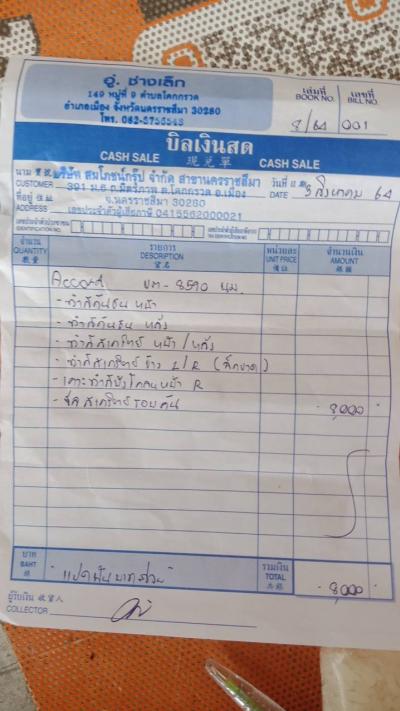 อู่ ช่างเล็ก
149 หมู่ที่ 9 ตำบลโคกกรวด
อำเภอเมือง จังหวัดนครราชสีมา 30280
โทร. 062-5756545
เล่มที่ BOOK NO. 8/64
เลขที่ BILL NO. 001
บิลเงินสด
CASH SALE 現兌單 CASH SALE
นาม CUSTOMER บริษัท สมโภชน์กรุ๊ป จำกัด สาขานครราชสีมา
391 ม.6 ถ.มิตรภาพ ต.โคกกรวด อ.เมือง
วันที่ DATE 3 สิงหาคม 64
ที่อยู่ ADDRESS จ.นครราชสีมา 30280
เลขประจำตัวผู้เสียภาษี 0415562000021
จำนวน QUANTITY 數量
รายการ DESCRIPTION 貨名
หน่วยละ UNIT PRICE 價銀
จำนวนเงิน AMOUNT 銀額
Accord ขก-8590 นม.
- ทำสีกันชน หน้า
- ทำสีกันชน หลัง
- ทำสีสเกิร์ตย์ หน้า / หลัง
- ทำสีสเกิร์ตย์ ข้าง L/R
- เคาะทำสีบังโคลนหน้า R
สเกิร์ตย์ รอบคัน 8,000
บาท BAHT 銖
"แปดพันบาทถ้วน"
รวมเงิน TOTAL 共銀 8,000
ผู้รับเงิน 收貨人
COLLECTOR